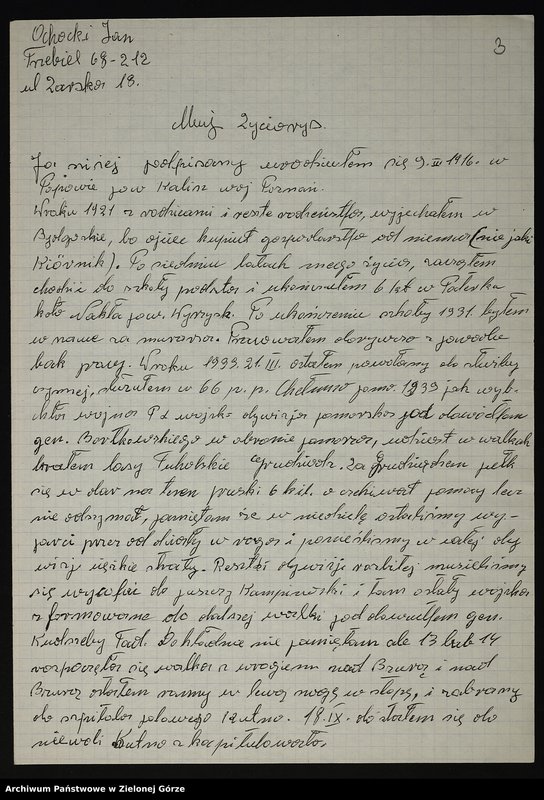 Ochocki Jan
3
Trzebiel 68-212
ul Żarska 18.
Muj Życiorys.
Ja niżej podpisany urodziłem się 9. III 1916. w
pow Kalisz woj Poznań.
W roku 1921 z rodzicami i reste rodzeństfa, wyjechałem w
Bydgoskie, bo ojciec kupiuł gospodarstfo od niemca (nie jaki
). Po siedmiu latach mego życia, zaczołem
chodzić do szkoły podsta i ukończyłem 6 lat w
koło Nakła pow. Wyrzysk. Po ukończeniu szkoły 1931 byłem
w nauce za murarza. Pracowałem dorywczo z powodu
brak pracy. W roku 1939. 21. III. ostałem powołany do służby
czynnej, służułem w 66 p. p. Chełmno pomo. 1939 jak wyb-
chła wojna P d wojsk. dywizja pomorska pod dowódstem
gen. Bortkowskiego w obronie pomorza, udział w walkach
brałem lasy Tucholskie Grudziodz. Za Grudziędzem pułk
się w dar na teren pruski 6 kil. oczekiwał pomocy lecz
nie otrzymał, pamiętam że w niedzielę ostaliśmy wy-
parci przez oddziały wroga i ponieśliśmy w całej dy
wizji ciężkie straty. Resztki dywizji rozbitej musieliśmy
się wycofać do puszczy Kampinoski i tam ostały wojska
zformowane do dalszej walki pod dowudstem gen.
Kudrzeby Tad. Dokładnie nie pamiętam ale 13 lub 14
rozpoczęła się walka z wrogiem nad Bzurą i nad
Bzurą ostałem ranny w lewą nogę w stopę, i zabrany
do szpitala polowego Kutno. 18. IX. dostałem się do
niewoli Kutno skapitulowało.
Archiwum Państwowe w Zielonej Górze